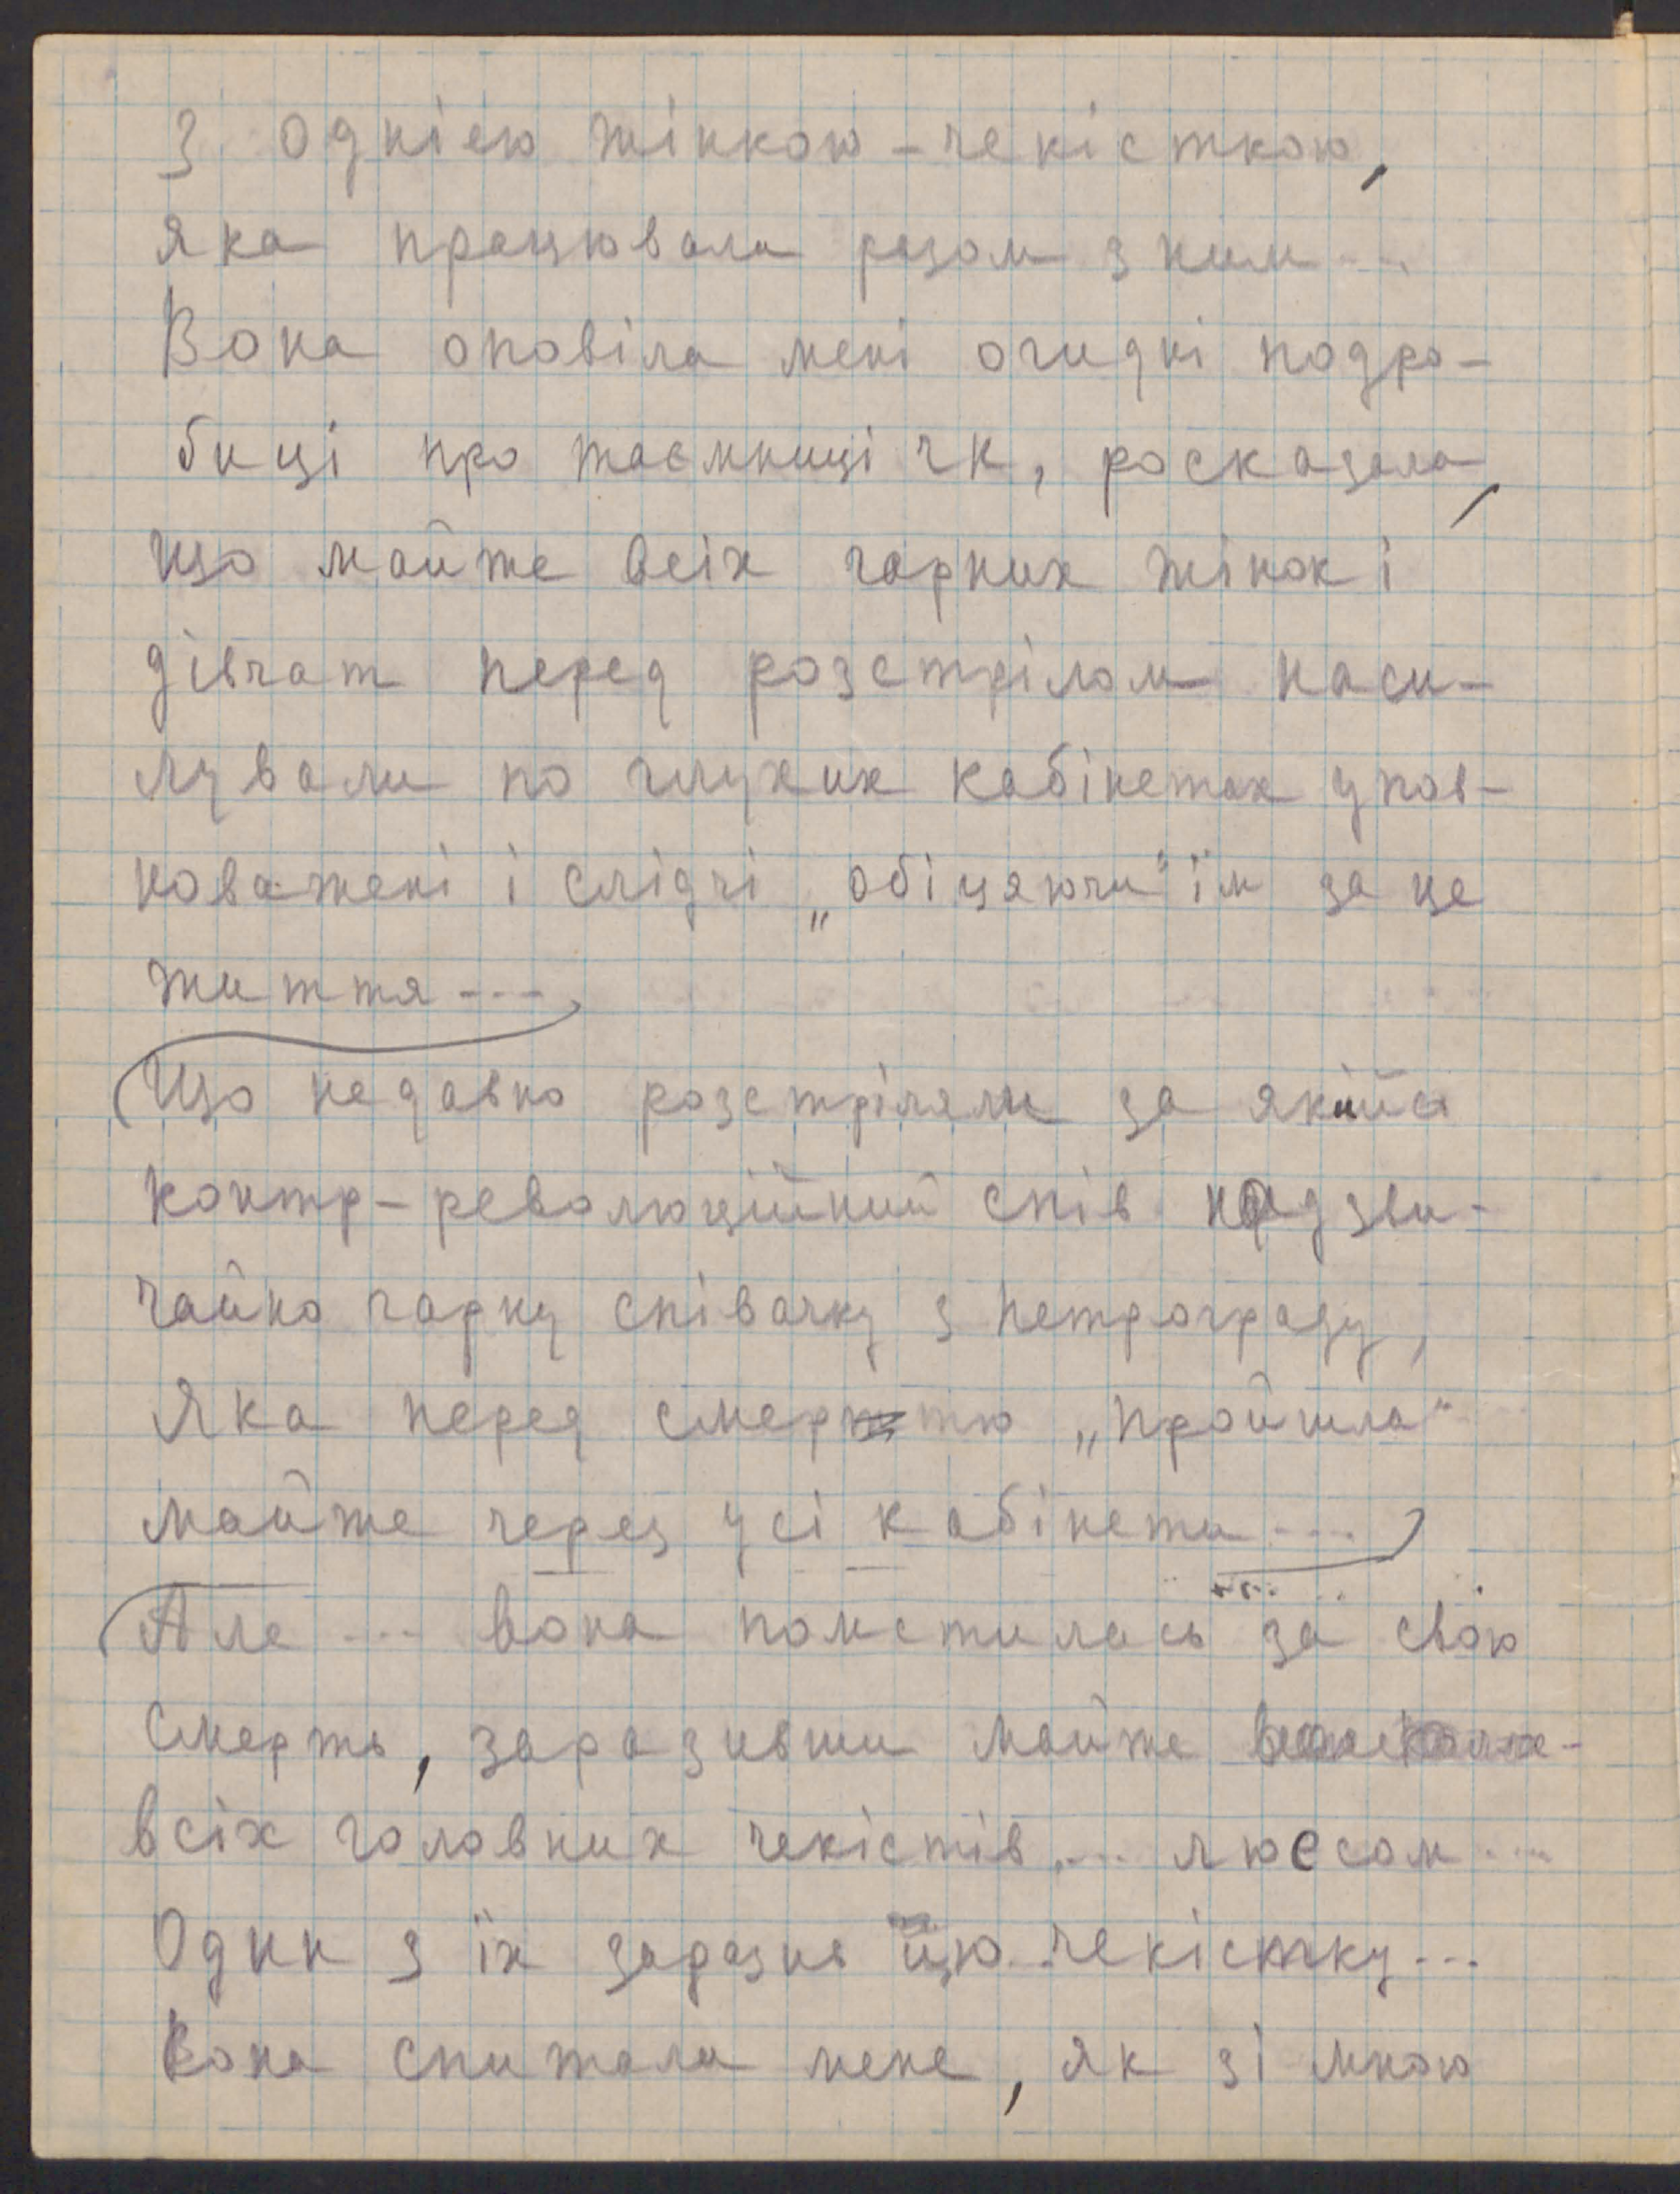 З однією жінкою-чекісткою,
яка працювала разом з ним...
Вона оповіла мені огидні подро-
биці про таємниці ЧК, росказала,
що майже всіх гарних жінок і
дівчат перед розстрілом наси-
лували по глухих кабінетах упов-
новажені і слідчі „обіцяючи" їм за це
життя ---
Що недавно розстріляли за якийсь
контр-революційний спів надзви-
чайно гарну співачку з Петрограду,
яка перед смертю „пройшла"
майже через усі кабінети ...
Але ... вона помстилась за свою
смерть, заразивши майже
всіх головних чекістів ... люесом ...
Один з їх заразив цю чекістку ...
Вона спитала мене, як зі мною